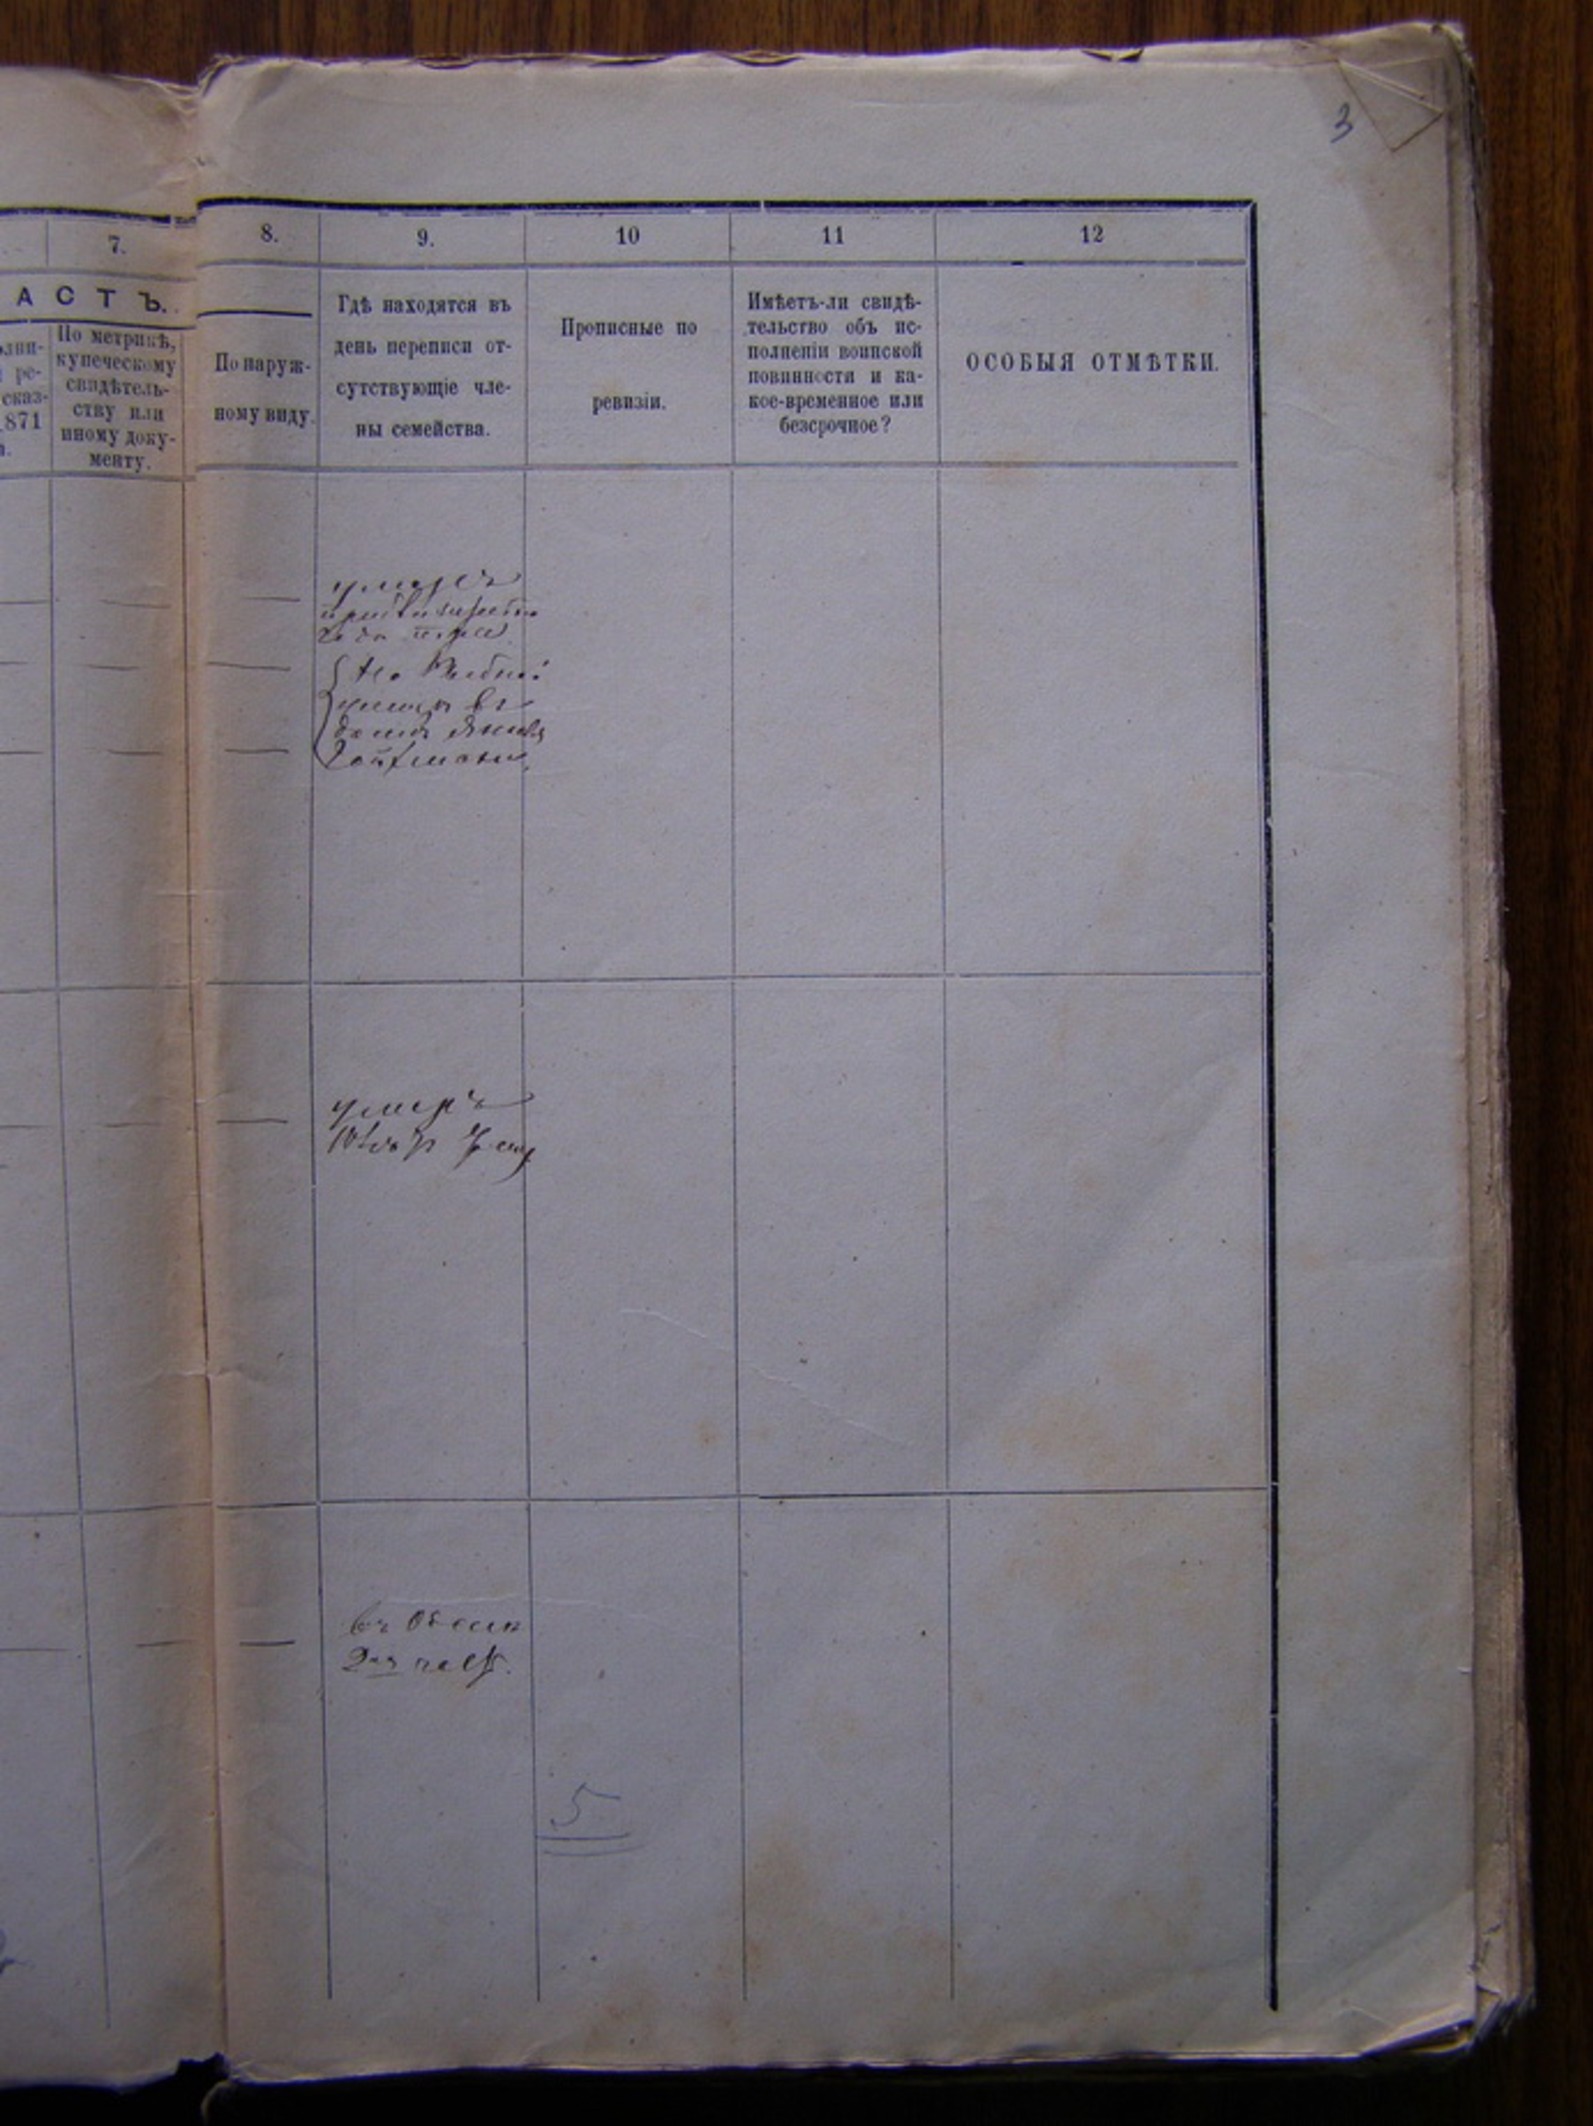 3
7.
8.
9.
10
11
12
АСТЪ.
По метрикѣ,
купеческому
свидѣтель-
ству или
иному доку-
менту.
ре-
сказ-
871
По наруж-
ному виду.
Гдѣ находятся въ
день переписи от-
сутствующіе чле-
ны семейства.
Прописные по
ревизіи.
Имѣетъ-ли свидѣ-
тельство объ ис-
полненіи воинской
повинности и ка-
кое-временное или
безсрочное?
ОСОБЫЯ ОТМѢТКИ.
умеръ
года
На Рыбной
улицѣ въ
домѣ
умеръ
въ Одессѣ
5